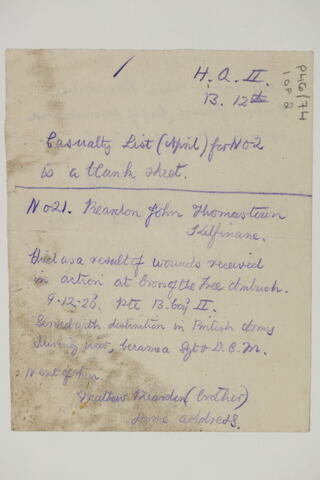 P46/74
1 OF 2
H. Q. II.
B. 12th
Casualty List (April) for No 2
is a blank sheet.
No 21. Reardon John Thomastown
Kilfinane.
Died as a result of wounds received
in action at of the Tree Ambush.
9-12-20. Pte B. Coy II.
Served with distinction in British Army
during war, became Sgt & D. C. M.
Next of kin.
Mathew Reardon (brother)
same address.